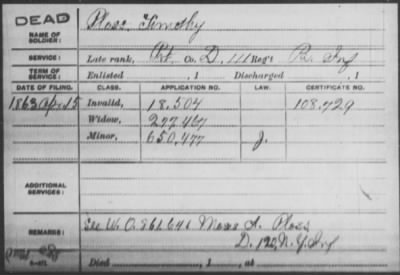 DEAD
NAME OF SOLDIER: Ploss, Timothy
SERVICE: Late rank, Pt. Co. D, 111 Reg't Pa. Inf
TERM OF SERVICE: Enlisted , 1 Discharged , 1
DATE OF FILING. CLASS. APPLICATION NO. LAW. CERTIFICATE NO.
1863 Apr 15 Invalid, 18.504 108.729
Widow,
Minor, 650,477 J.
ADDITIONAL SERVICES:
REMARKS: See W. O. 861641 Moses A. Ploss
D. 122, N.Y. Inf
Died , 1 , at